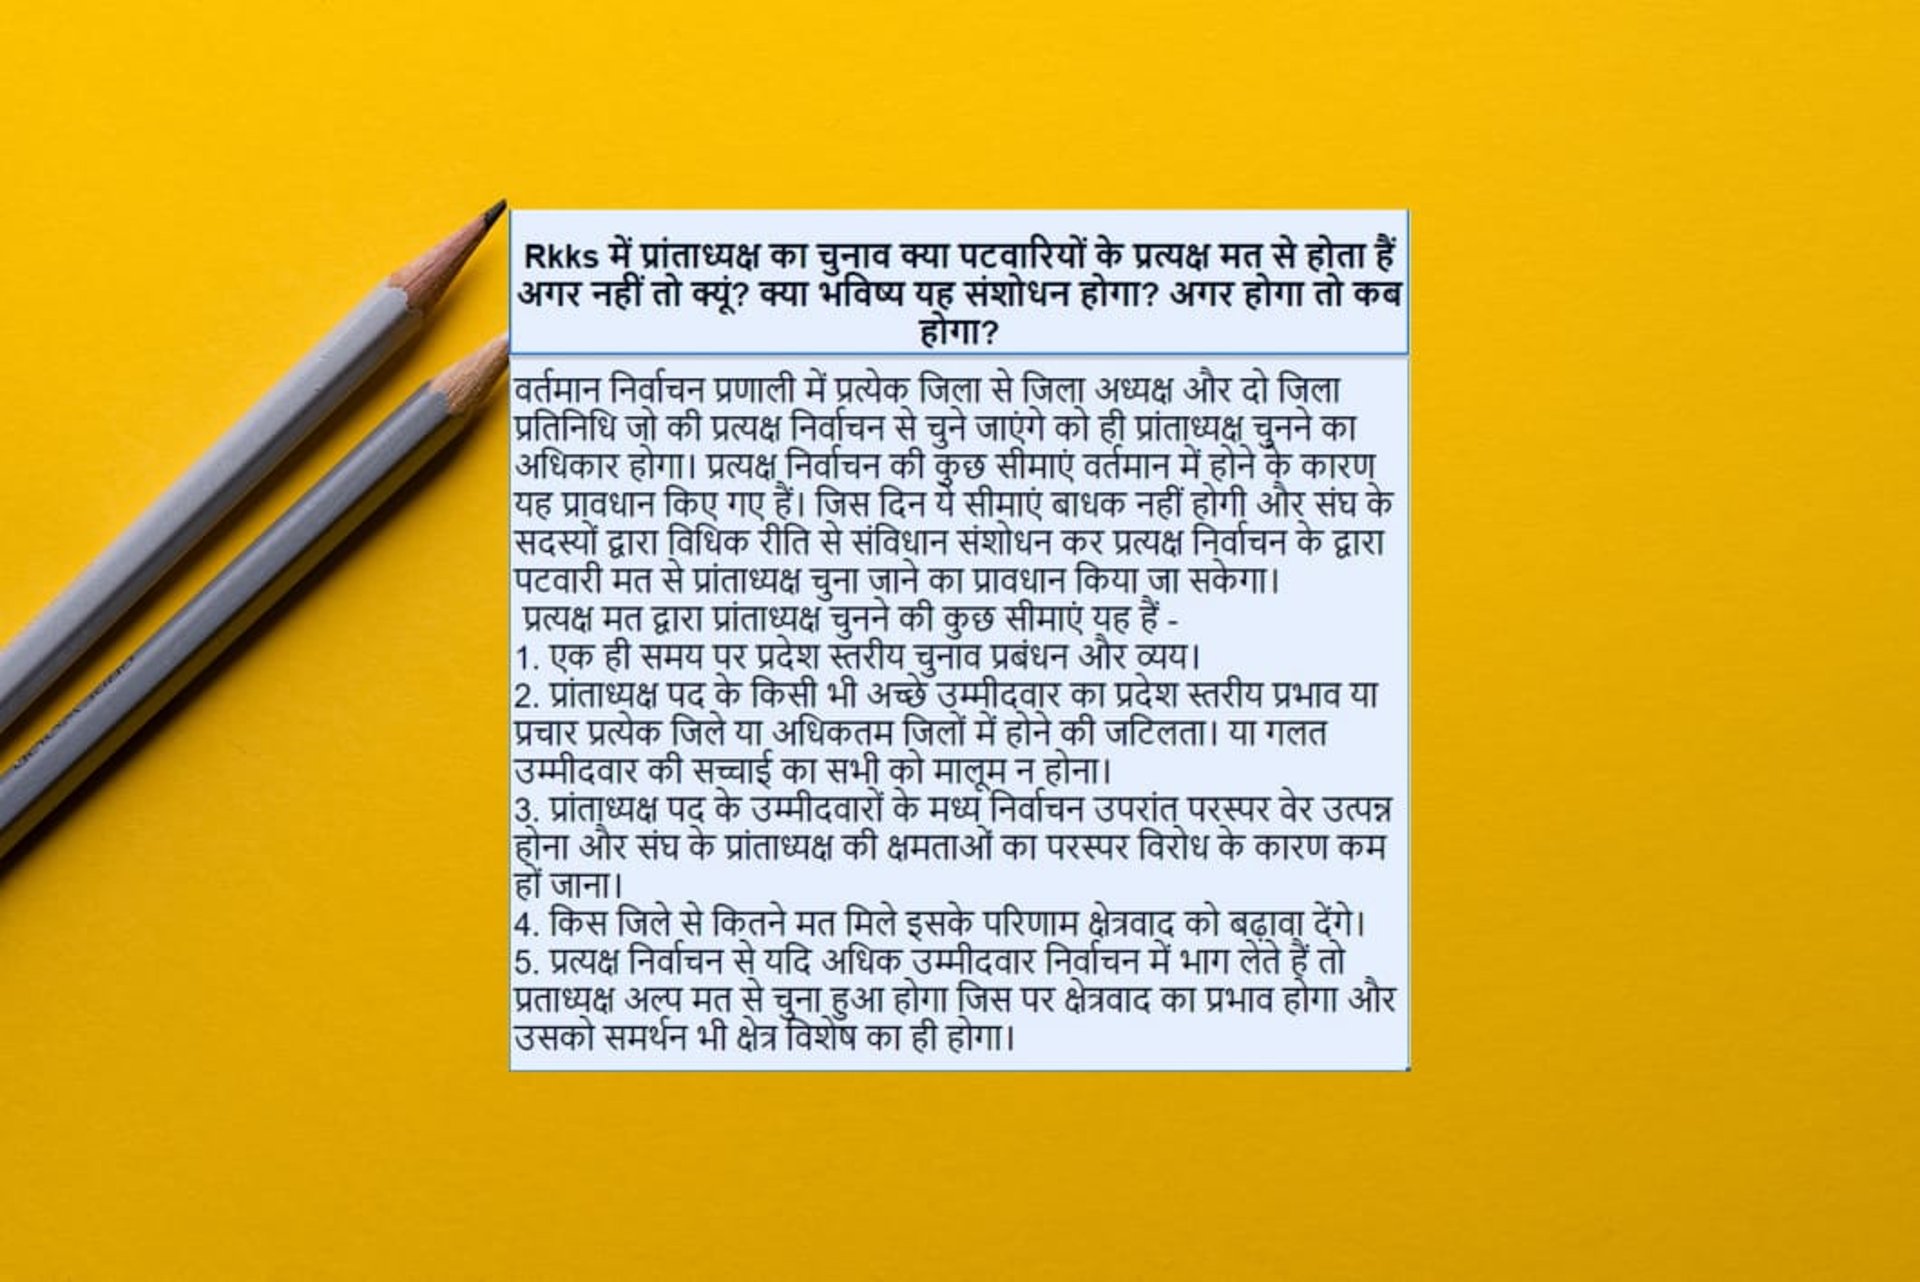 Rkks में प्रांताध्यक्ष का चुनाव क्या पटवारियों के प्रत्यक्ष मत से होता हैं
अगर नहीं तो क्यूं? क्या भविष्य यह संशोधन होगा? अगर होगा तो कब
होगा?
वर्तमान निर्वाचन प्रणाली में प्रत्येक जिला से जिला अध्यक्ष और दो जिला
प्रतिनिधि जो की प्रत्यक्ष निर्वाचन से चुने जाएंगे को ही प्रांताध्यक्ष चुनने का
अधिकार होगा। प्रत्यक्ष निर्वाचन की कुछ सीमाएं वर्तमान में होने के कारण
यह प्रावधान किए गए हैं। जिस दिन ये सीमाएं बाधक नहीं होगी और संघ के
सदस्यों द्वारा विधिक रीति से संविधान संशोधन कर प्रत्यक्ष निर्वाचन के द्वारा
पटवारी मत से प्रांताध्यक्ष चुना जाने का प्रावधान किया जा सकेगा।
प्रत्यक्ष मत द्वारा प्रांताध्यक्ष चुनने की कुछ सीमाएं यह हैं -
1. एक ही समय पर प्रदेश स्तरीय चुनाव प्रबंधन और व्यय।
2. प्रांताध्यक्ष पद के किसी भी अच्छे उम्मीदवार का प्रदेश स्तरीय प्रभाव या
प्रचार प्रत्येक जिले या अधिकतम जिलों में होने की जटिलता। या गलत
उम्मीदवार की सच्चाई का सभी को मालूम न होना।
3. प्रांताध्यक्ष पद के उम्मीदवारों के मध्य निर्वाचन उपरांत परस्पर वेर उत्पन्न
होना और संघ के प्रांताध्यक्ष की क्षमताओं का परस्पर विरोध के कारण कम
हों जाना।
4. किस जिले से कितने मत मिले इसके परिणाम क्षेत्रवाद को बढ़ावा देंगे।
5. प्रत्यक्ष निर्वाचन से यदि अधिक उम्मीदवार निर्वाचन में भाग लेते हैं तो
प्रताध्यक्ष अल्प मत से चुना हुआ होगा जिस पर क्षेत्रवाद का प्रभाव होगा और
उसको समर्थन भी क्षेत्र विशेष का ही होगा।